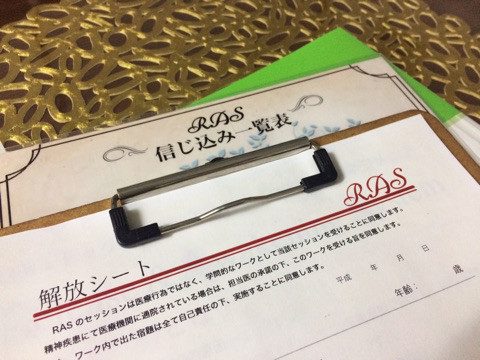 RAS
信じ込み一覧表
RAS
解放シート
RASのセッションは医療行為ではなく、学問的なワークとして当該セッションを受けることに同意します。
精神疾患にて医療機関に通院されている場合は、担当医の承諾の下、このワークを受ける旨を同意します。
ワーク内で出た宿題は全て自己責任の下、実施することに同意します。
平成　　年　　月　　日
年齢：　　歳